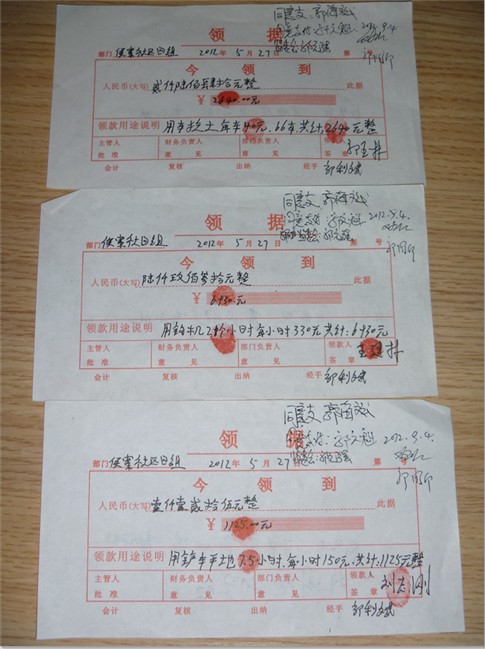 同意支 郭海斌
2012.9.4
领 据
部门 侯寨社区日组 2012 年 5 月 27 日 第 号
今 领 到
人民币(大写) 贰仟陆佰肆拾元整 此据
¥ 2640.00元
领款用途说明 用车拉土每车40元、66车,共计2640元整
主管人 财务负责人 部门负责人 领款人
批准 意见 意见 签章
会计 复核 出纳 经手
同意支 郭海斌
2012.9.4.
领 据
部门 侯寨社区日组 2012 年 5 月 27 日 第 号
今 领 到
人民币(大写) 陆仟玖佰叁拾元整 此据
¥ 6930.元
领款用途说明 用钩机21个小时每小时330元共计:6930元整
主管人 财务负责人 部门负责人 领款人
批准 意见 意见 签章
会计 复核 出纳 经手
同意支 郭海斌
2012.9.4.
领 据
部门 侯寨社区日组 2012 年 5 月 27 日 第 号
今 领 到
人民币(大写) 壹仟壹贰拾伍元整 此据
¥ 1125.00元
领款用途说明 用铲车平土地7.5小时,每小时150元,共计:1125元整
主管人 财务负责人 部门负责人 领款人
批准 意见 意见 签章 刘志刚
会计 复核 出纳 经手